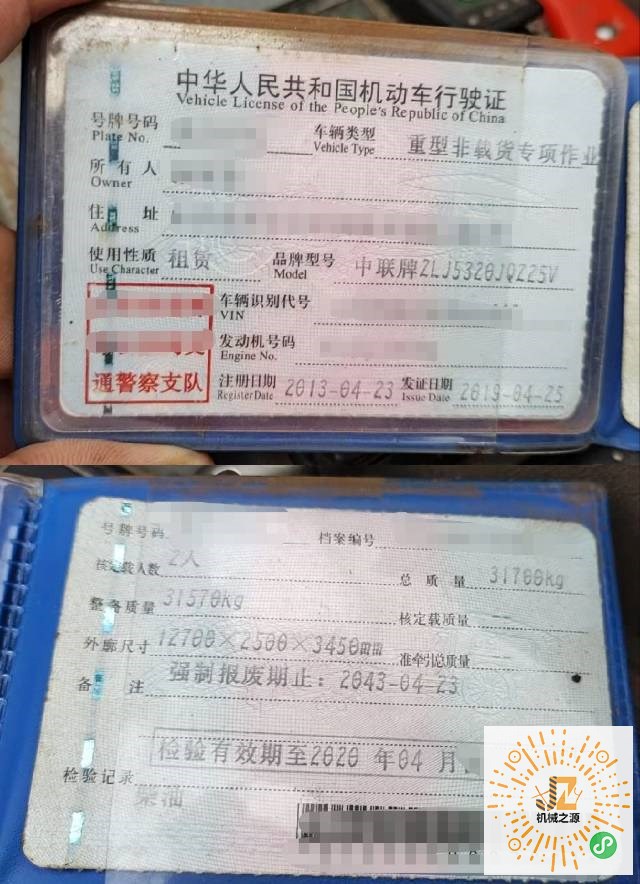 中华人民共和国机动车行驶证
Vehicle License of the People's Republic of China
号牌号码
Plate No.
车辆类型
Vehicle Type
重型非载货专项作业
所有人
Owner
住址
Address
使用性质
Use Character
租赁
品牌型号
Model
中联牌ZLJ5320JQZ25V
车辆识别代号
VIN
发动机号码
Engine No.
通警察支队
注册日期
Register Date
2013-04-23
发证日期
Issue Date
2019-04-25
号牌号码
档案编号
核定载人数
2人
总质量
31700kg
整备质量
31570kg
核定载质量
外廓尺寸
12700×2500×3450mm
准牵引总质量
备注
强制报废期止：2043-04-23
检验有效期至2020年04月
检验记录
柴油
JZY
机械之源